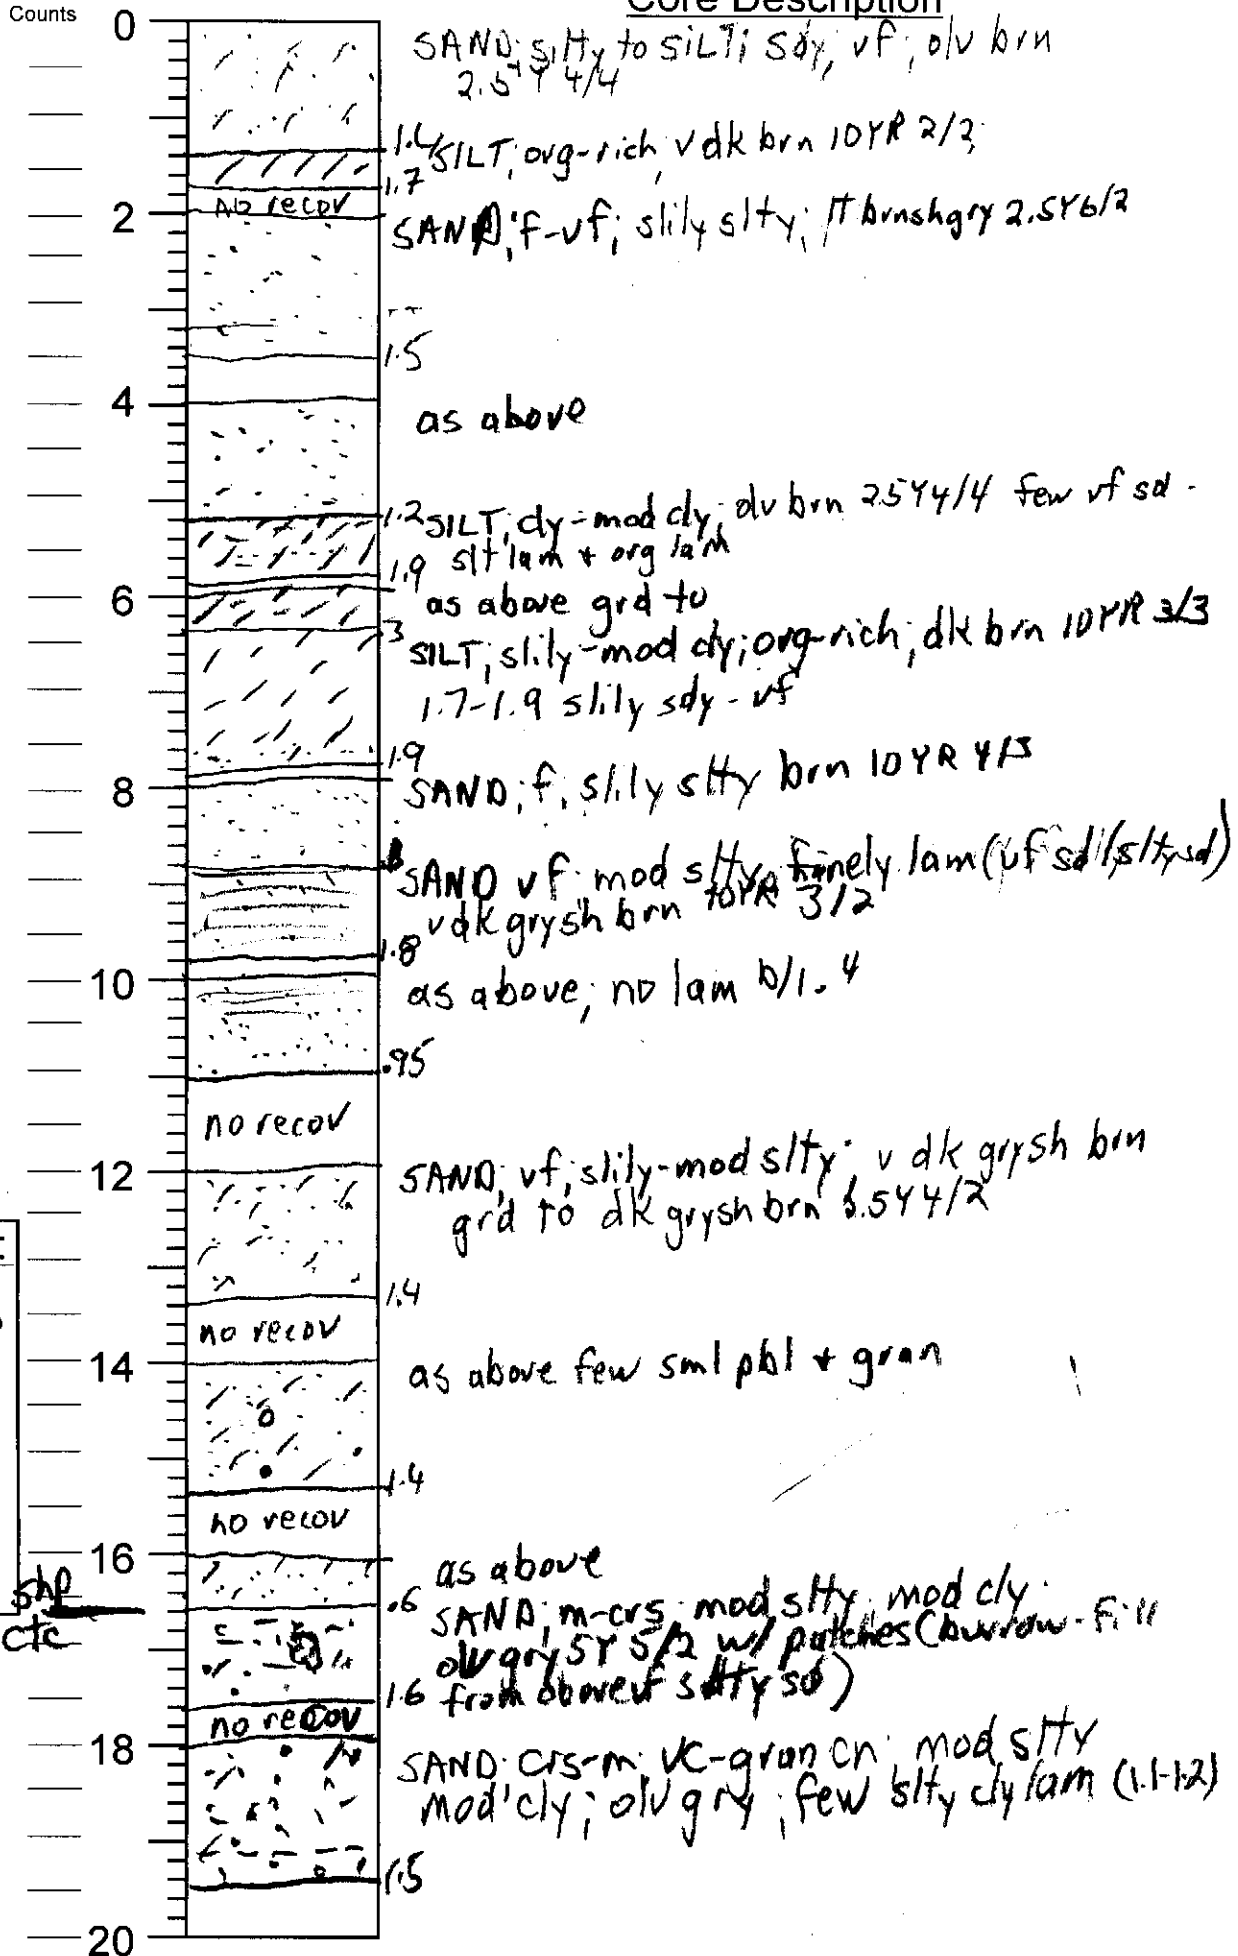 Counts
Core Description
0
SAND; slty to SILT; sdy, vf; olv brn
2.5Y 4/4
1.4
SILT; org-rich, v dk brn 10YR 2/2;
1.7
no recov
2
SAND; f-vf; slily slty; lt brnshgry 2.5Y6/2
1.5
4
as above
1.2
SILT; cly-mod cly; olv brn 2.5Y4/4 few vf sd-
slt lam + org lam
1.9
6
as above grd to
3
SILT; slily-mod cly; org-rich; dk brn 10YR 3/3
1.7-1.9 slily sdy-vf
1.9
8
SAND; f, slily slty brn 10YR 4/3
SAND vf mod slty finely lam (vf sd/slty sd)
v dk grysh brn 10YR 3/2
1.8
10
as above; no lam b/1.4
.95
no recov
12
SAND; vf; slily-mod slty; v dk grysh brn
grd to dk grysh brn 5Y4/2
1.4
no recov
14
as above few sml pbl + gran
1.4
no recov
16
as above
shp
ctc
.6
SAND; m-crs; mod slty; mod cly;
olv gry 5Y 5/2 w/ patches (burrow-fill
from above vf slty sd)
1.6
no recov
18
SAND; crs-m; vc-gran cn; mod slty
mod cly; olv gry; few slty cly lam (1.1-1.2)
1.5
20